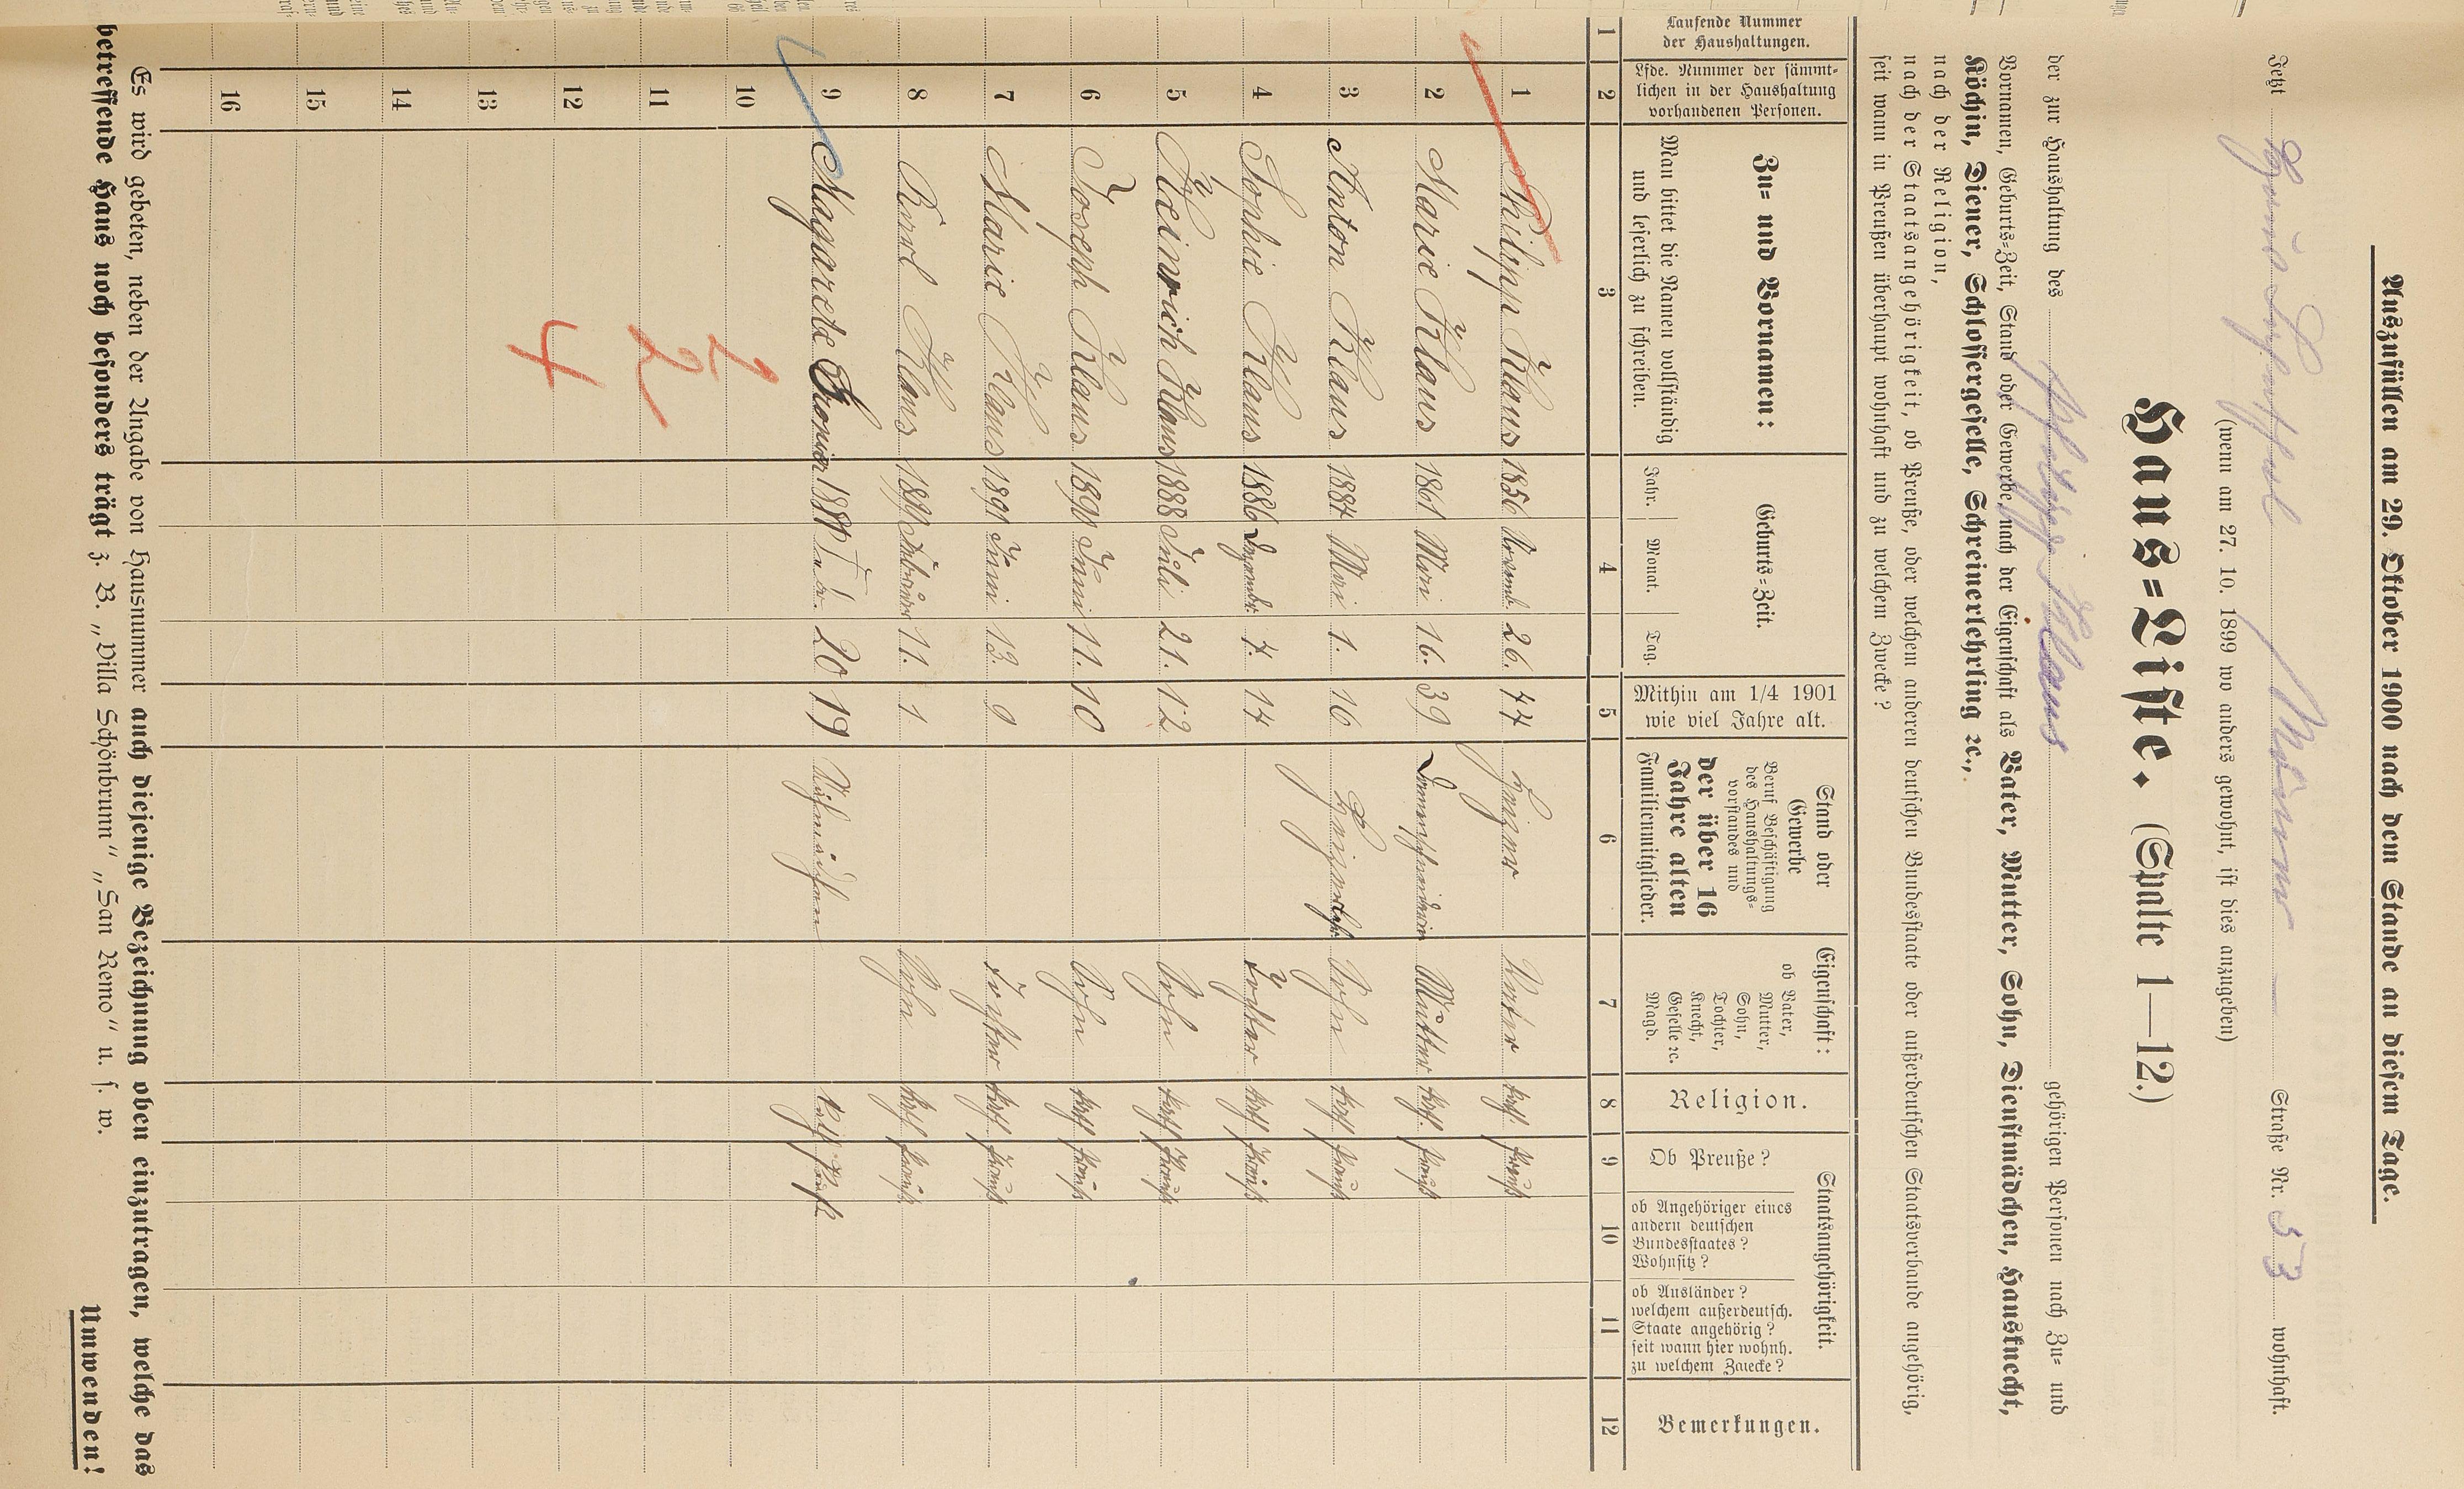 Auszufüllen am 29. Oktober 1900 nach dem Stande an diesem Tage.
Jetzt Straße Nr. 53 wohnhaft.
(wenn am 27. 10. 1899 wo anders gewohnt, ist dies anzugeben)
Haus=Liste. (Spalte 1—12.)
der zur Haushaltung des Philipp Klaus gehörigen Personen nach Zu= und
Vornamen, Geburts=Zeit, Stand oder Gewerbe, nach der Eigenschaft als Vater, Mutter, Sohn, Dienstmädchen, Hausknecht,
Köchin, Diener, Schlossergeselle, Schreinerlehrling ꝛc.,
nach der Religion,
nach der Staatsangehörigkeit, ob Preuße, oder welchem anderen deutschen Bundesstaate oder außerdeutschen Staatsverbande angehörig,
seit wann in Preußen überhaupt wohnhaft und zu welchem Zwecke?
Laufende Nummer
der Haushaltungen.
Lfde. Nummer der sämmt=
lichen in der Haushaltung
vorhandenen Personen.
Zu= und Vornamen:
Man bittet die Namen vollständig
und leserlich zu schreiben.
Geburts=Zeit.
Jahr. Monat. Tag.
Mithin am 1/4 1901
wie viel Jahre alt.
Stand oder
Gewerbe
Beruf Beschäftigung
des Haushaltungs=
vorstandes und
der über 16
Jahre alten
Familienmitglieder.
Eigenschaft:
ob Vater,
Mutter,
Sohn,
Tochter,
Knecht,
Geselle ꝛc.
Magd.
Religion.
Staatsangehörigkeit.
Ob Preuße?
ob Angehöriger eines
andern deutschen
Bundesstaates?
Wohnsitz?
ob Ausländer?
welchem außerdeutsch.
Staate angehörig?
seit wann hier wohnh.
zu welchem Zwecke?
Bemerkungen.
1 2 3 4 5 6 7 8 9 10 11 12
1 Philipp Klaus 1856 Novemb. 26. 44 Heizer Vater kath. Preuß
2 Marie Klaus 1861 Mai 16. 39 Mutter kath. Preuß
3 Anton Klaus 1884 Mai 1. 16 Sohn kath. Preuß
4 Sophie Klaus 1886 Dezember 7. 14 Tochter kath. Preuß
5 Heinrich Klaus 1888 Juli 21. 12 Sohn kath. Preuß
6 Joseph Klaus 1890 Juni 11. 10 Sohn kath. Preuß
7 Marie Klaus 1891 Juni 13. 9 Tochter kath. Preuß
8 Karl Klaus 1899 Februar 11. 1 Sohn kath. Preuß
9 Magarete 20 19
10
11
12
13
14
15
16
2
2
4
Es wird gebeten, neben der Angabe von Hausnummer auch diejenige Bezeichnung oben einzutragen, welche das
betreffende Haus noch besonders trägt z. B. „Villa Schönbrunn“ „San Remo“ u. s. w.
Umwenden!